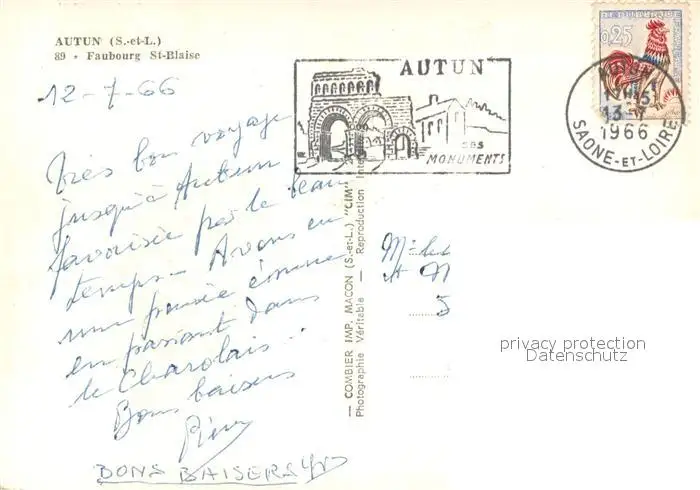 AUTUN (S.-et-L.)
89 - Faubourg St-Blaise
12-7-66
Très bon voyage
jusqu'à Autun
favorisée par le beau
temps. Avons eu
une pensée émue
en passant dans
le Charolais...
Bons baisers
Pierre
BONS BAISERS
— COMBIER IMP. MACON (S.-et-L.) "CIM" —
Photographie Véritable — Reproduction
AUTUN
SES
MONUMENTS
REPUBLIQUE FRANÇAISE
0,25
AUTUN
13-7
1966
SAONE-ET-LOIRE
et M
5
privacy protection
Datenschutz